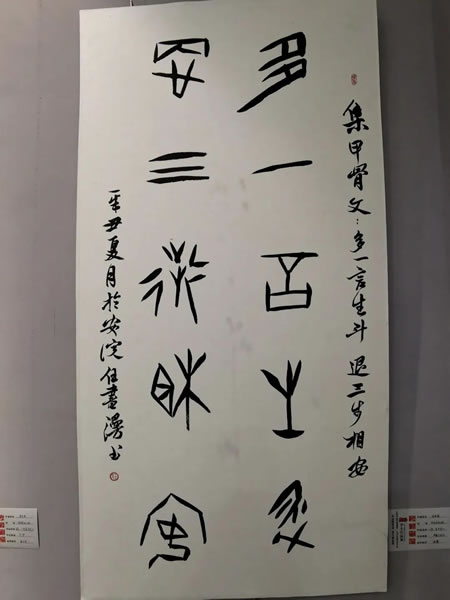 集甲骨文：多一言生斗 退三步相安
多一言生斗
退三步相安
辛丑夏月於安院任书